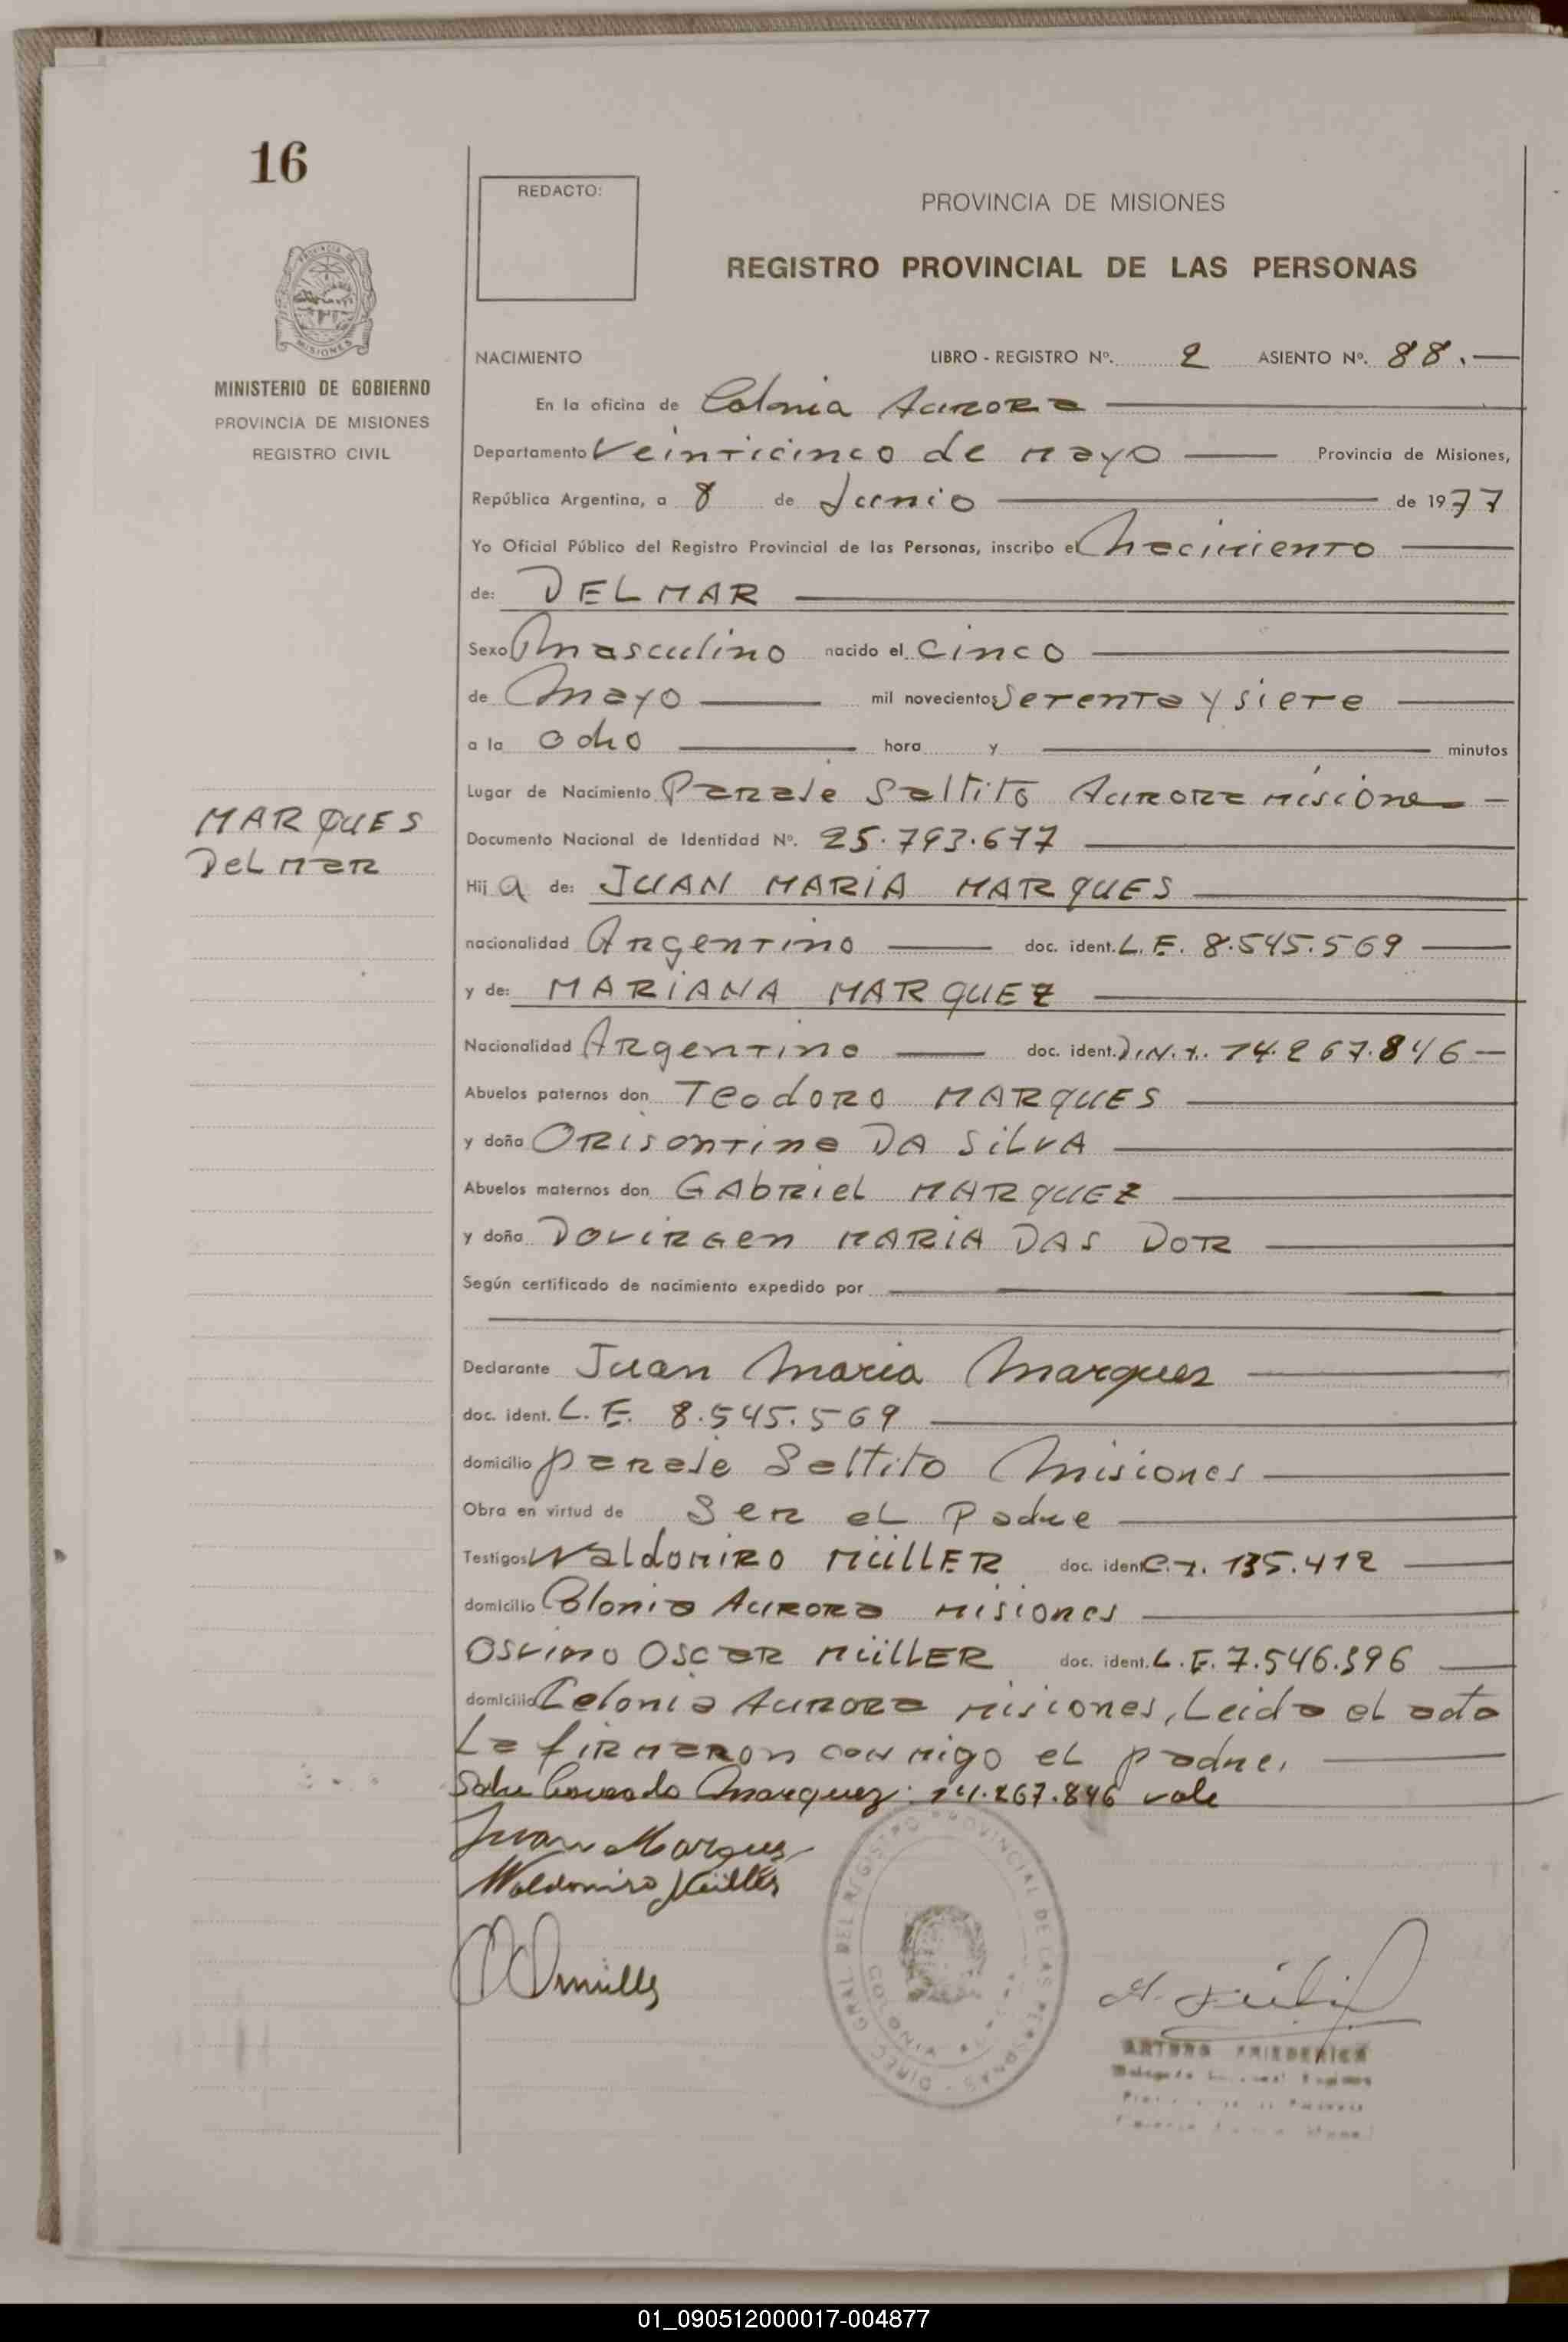 16
REDACTO:
PROVINCIA DE MISIONES
REGISTRO PROVINCIAL DE LAS PERSONAS
MISIONES
MINISTERIO DE GOBIERNO
PROVINCIA DE MISIONES
REGISTRO CIVIL
NACIMIENTO LIBRO - REGISTRO Nº. 2 ASIENTO Nº. 88.
En la oficina de Colonia Aurora
Departamento Veinticinco de Mayo Provincia de Misiones,
República Argentina, a 8 de Junio de 1977
Yo Oficial Público del Registro Provincial de las Personas, inscribo el Nacimiento
de: DELMAR
Sexo Masculino nacido el Cinco
de Mayo mil novecientos Setenta y siete
a la Ocho hora y minutos
Lugar de Nacimiento Paraje Saltito Aurora Misiones
MARQUES
DelMar
Documento Nacional de Identidad Nº. 25.793.677
Hij a de: JUAN MARIA MARQUES
nacionalidad Argentino doc. ident. L.E. 8.545.569
y de: MARIANA MARQUEZ
Nacionalidad Argentino doc. ident. D.N.I. 14.267.846
Abuelos paternos don Teodoro MARQUES
y doña ORisontina DA SilVA
Abuelos maternos don GAbRiel MARQUEZ
y doña DOVIRGen MARIA DAS DOR
Según certificado de nacimiento expedido por
Declarante Juan Maria Marques
doc. ident. L.E. 8.545.569
domicilio Paraje Saltito Misiones
Obra en virtud de Ser el Padre
Testigos WaldoMiRO MüllER doc. ident C.I. 135.412
domicilio Colonia Aurora Misiones
OSVinO OSCAR MüllER doc. ident. L.E. 7.546.396
domicilio Colonia Aurora Misiones, Leida el acta
La firmaron conmigo el padre.
Sobre borrado Marquez: 14.267.846 vale
Juan Marques
Waldomiro Müller
DIREC. GRAL. DEL REGISTRO PROVINCIAL DE LAS PERSONAS
ARTURO FRIEDERICH
01_090512000017-004877